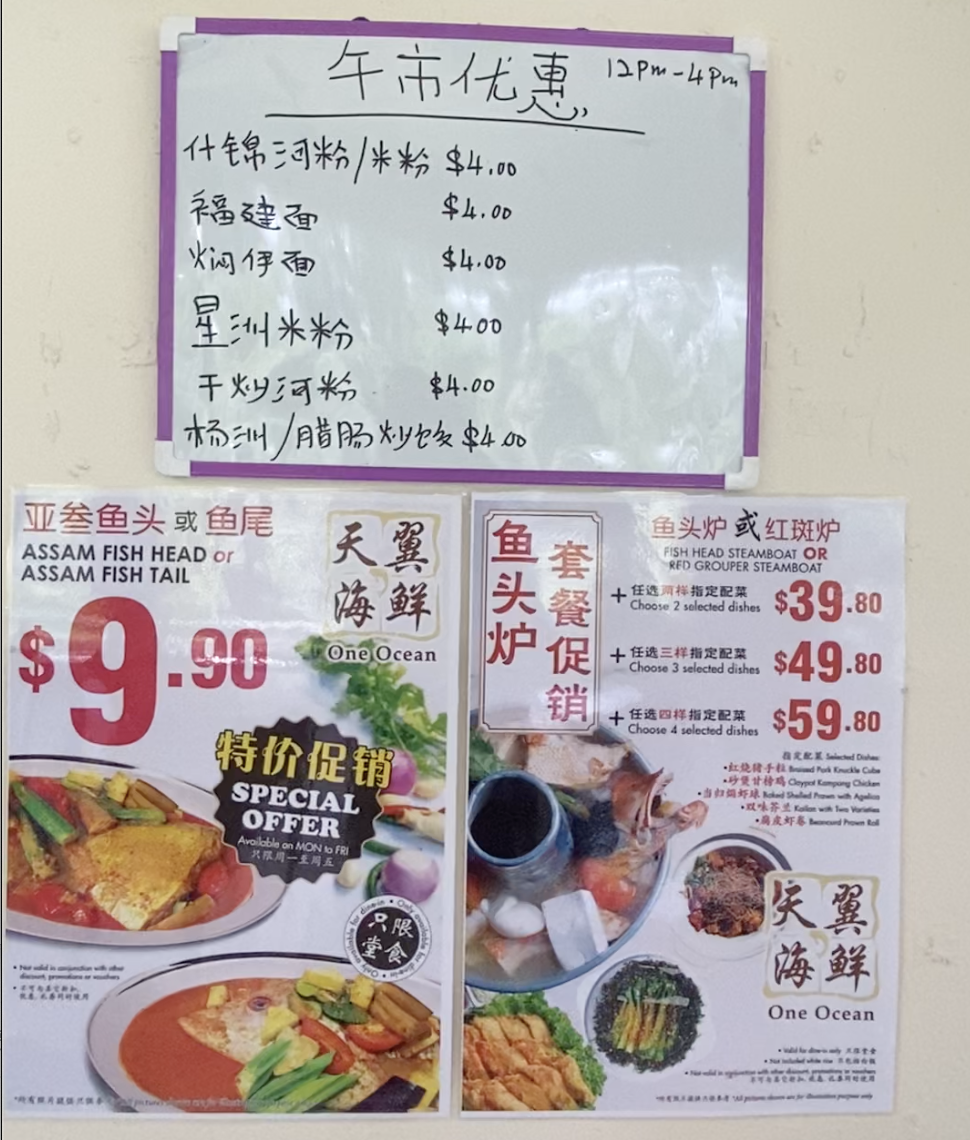 午市优惠 12pm-4pm
什锦河粉/米粉 $4.00
福建面 $4.00
焖伊面 $4.00
星洲米粉 $4.00
干炒河粉 $4.00
杨洲/腊肠炒饭 $4.00
亚叁鱼头 或 鱼尾
ASSAM FISH HEAD or
ASSAM FISH TAIL
$9.90
天翼
海鲜
One Ocean
特价促销
SPECIAL
OFFER
Available on MON to FRI
只限周一至周五
只限
堂食
• Only available for dine-in • Only available for dine-in
• Not valid in conjunction with other
discount, promotions or vouchers
鱼头炉
套餐促销
鱼头炉 或 红斑炉
FISH HEAD STEAMBOAT OR
RED GROUPER STEAMBOAT
+ 任选两样指定配菜
Choose 2 selected dishes $39.80
+ 任选三样指定配菜
Choose 3 selected dishes $49.80
+ 任选四样指定配菜
Choose 4 selected dishes $59.80
指定配菜 Selected Dishes:
•红烧猪手粒 Braised Pork Knuckle Cube
•砂煲甘榜鸡 Claypot Kampung Chicken
•当归焗虾球 Baked Shelled Prawn with Agelica
•双味芥兰 Kailan with Two Varieties
•腐皮虾卷 Beancurd Prawn Roll
天翼
海鲜
One Ocean
• Valid for dine-in only 只限堂食
• Not included white rice
• Not valid in conjunction with other discount, promotions or vouchers
*All pictures shown are for illustration purpose only